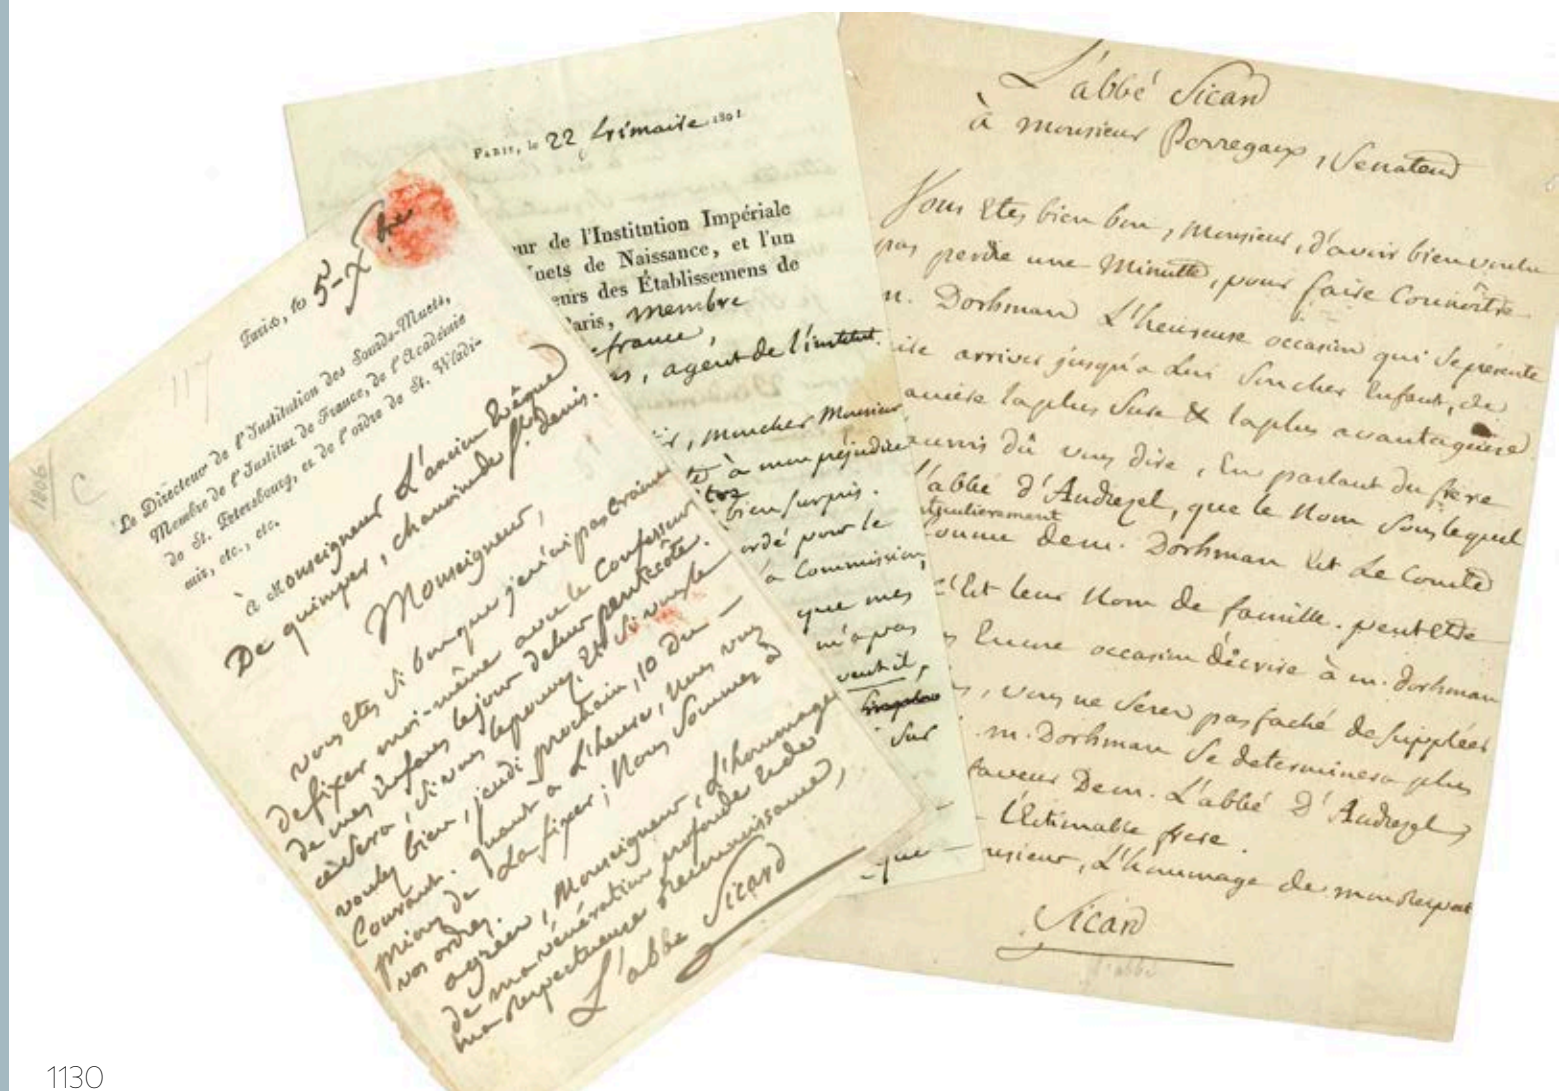 Paris, le 5 Xbre
117
1806
C
Le Directeur de l'Institution des Sourds-Muets,
Membre de l'Institut de France, de l'Académie
de St. Petersbourg, et de l'ordre de St. Wladi-
mir, etc., etc.
à Monseigneur L'ancien Evêque
De quimper, chanoine de St. denis.
Monseigneur,
vous etes si bon que je n'ai pas craint
de fixer moi-même avec le Confesseur
de mes enfans le jour de leur pentecôte.
ce sera, si vous l'approuvez, et si vous le
voulez bien, jeudi prochain, 10 du
Courant. quant à L'heure, Nous vous
prions de La fixer; Nous Sommes à
vos ordres.
agréez, Monseigneur, L'hommage
de ma vénération profonde et de
ma respectueuse reconnaissance,
L'abbé Sicard
Paris, le 22 frimaire 1801
eur de l'Institution Impériale
uets de Naissance, et l'un
eurs des Établissemens de
aris, membre
france,
, agent de l'institut.
, mon cher Monsieur
à mon préjudice
bien surpris.
ordé pour le
a Commission,
que mes
m'a pas
veut il,
sur
L'abbé Sicard
à monsieur Perregaux, Senateur
Vous etes bien bon, Monsieur, d'avoir bien voulu
pas perdre une Minutte, pour faire Connoître
m. Dorhman L'heureuse occasion qui se présente
arriver jusqu'à Lui Son cher Enfant, de
anière la plus Sure & la plus avantageuse.
aurois dû vous dire, En parlant du frère
l'abbé d'Andrezel, que le Nom Sous lequel
particulierement
Connu de m. Dorhman Est Le Comte
C'Est leur Nom de famille. peut Etre
Encore occasion d'écrire à m. dorhman
, vous ne Serez pas faché de Suppléer
m. Dorhman Se determinera plus
faveur De m. L'abbé D'Andrezel
l'Estimable frere.
que
nsieur, L'hommage de mon Respect
Sicard
l'abbé
1130